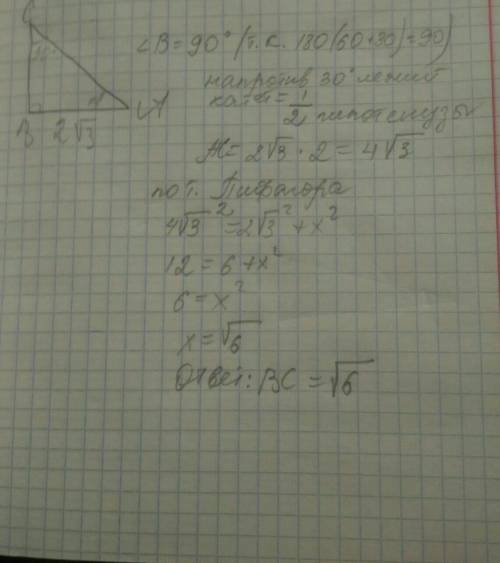 C
30°
B 2√3 A
∠B = 90° (т.к. 180(60+30)=90)
напротив 30° лежит
катет = 1/2 гипотенузы
= 2√3 · 2 = 4√3
по т. Пифагора
4√3² = 2√3² + x²
12 = 6 + x²
6 = x²
x = √6
Ответ: BC = √6